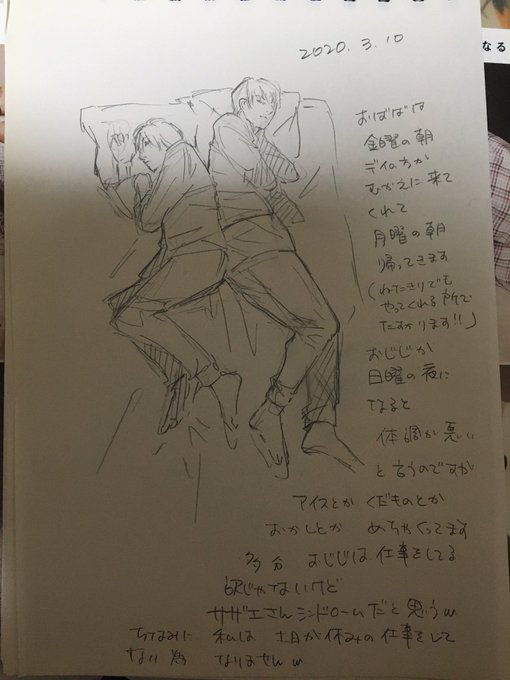 なる
2020.3.10
おばばは
金曜の朝
デイの方が
むかえに来て
くれて
月曜の朝
帰ってきます
(ねたきりでも
やってくれる所で
たすかります!!)
おじじが
日曜の夜に
なると
体調が悪い
と言うのですが
アイスとか くだものとか
おかしとか めちゃくってます
多分 おじじは仕事をしてる
訳じゃないけど
サザエさんシンドロームだと思うw
ちなみに 私は 土日が休みの仕事をして
ない為 なりませんw